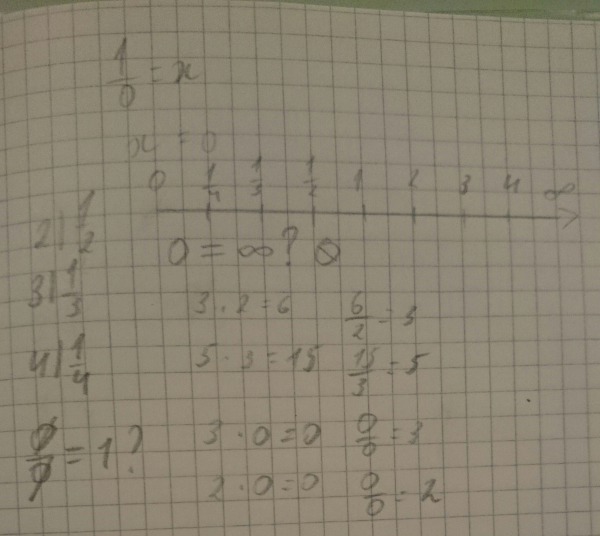 1/0 = x
x = 0
0 1/4 1/3 1/2 1 2 3 4 ∞
2 | 1/2
0 = ∞? 0
3 | 1/3
3 · 2 = 6 6/2 = 3
4 | 1/4
5 · 3 = 15 15/3 = 5
0/0 = 1?
3 · 0 = 0 0/0 = 3
2 · 0 = 0 0/0 = 2